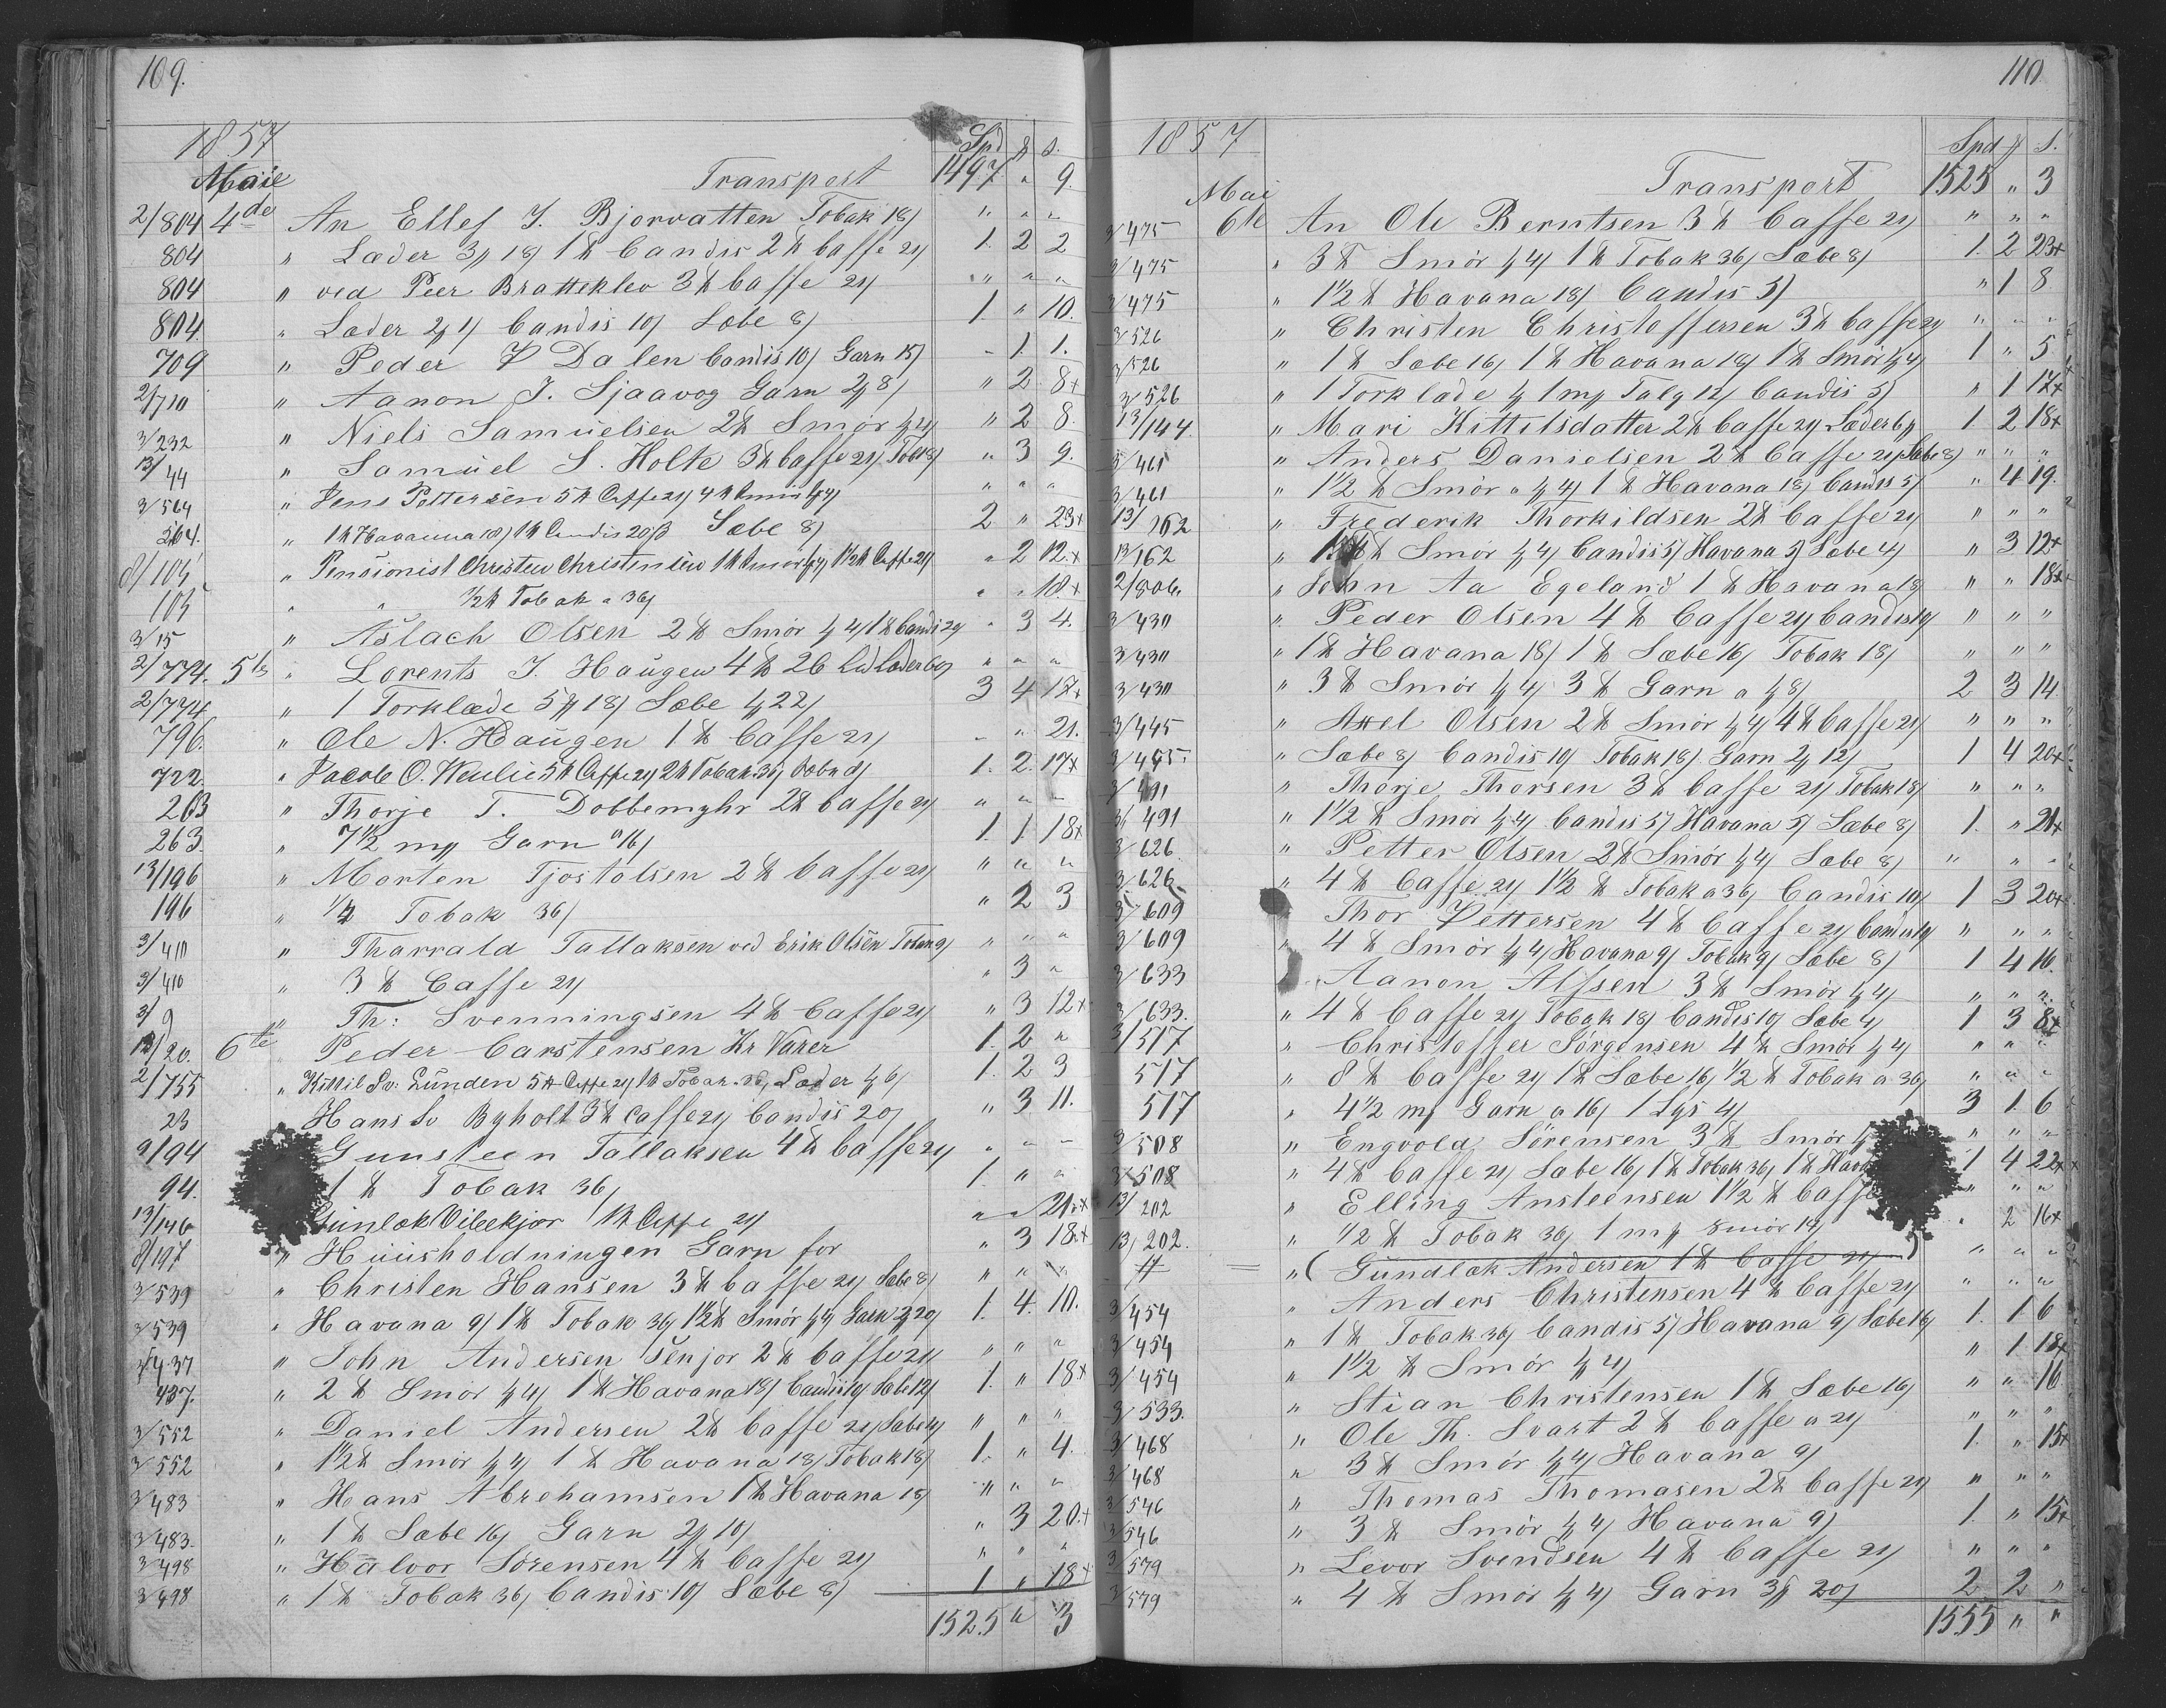 109.
1857
Spd ℔ s.
Maie Transport 1497 " 9.
2/804 4de An Ellef J. Bjorvatten Tobak 18/ " " "
804 " Læder 3℔ 18/ 1 ℔ Candis 2 ℔ Caffe 21/ 1. 2 2
804 " ved Peer Bratteklev 3 ℔ Caffe 21/ " " "
804. " Læder 2℔ 1/ Candis 10/ Sæbe 8/ 1. " 10.
709 " Peder P Dalen Candis 10/ Garn 15/ " 1. 1.
2/710 " Aanon J. Sjaavog Garn 2℔ 8/ " 2 8+
3/232 " Niels Samuelsen 2 ℔ Smør ℔ 4/ " 2 8.
13/44 " Samuel S. Holte 3 ℔ Caffe 21/ Tob 18/ " 3 9.
3/564 " Jens Pettersen 5 ℔ Caffe 21/ 4 ℔ Smør ℔ 4/ " " "
564. " 1 ℔ Havanna 18/ 1 ℔ Candis 20/ Sæbe 8/ 2 " 23+
8/105 " Pensionist Christen Christensen 1 ℔ Smør ℔ 4/ 1½ ℔ Caffe 21/ " 2 12.+
105 " " ½ ℔ Tobak a 36/ " " 18.+
3/15 " Aslach Olsen 2 ℔ Smør ℔ 4/ 1 ℔ Candi 20/ " 3 4.
2/774. 5te " Lorents J. Haugen 4 ℔ 26 Lod Læder 60/ " " "
2/774 " 1 Torklæde 5℔ 18/ Sæbe ℔ 22/ 3 4 17+
796. " Ole N. Haugen 1 ℔ Caffe 21/ " " 21.
722. " Jacob O. Veulie 5 ℔ Caffe 21/ 2 ℔ Tobak 36/ Sæbe 8/ 1. 2. 17+
263 " Thorje T. Dobbemyhr 2 ℔ Caffe 21/ " " "
263. " 7½ m℔ Garn a 16/ 1. 1. 18+
13/196 " Morten Tjostolsen 2 ℔ Caffe 21/ " " "
196 " ½ Tobak 36/ " 2 3
3/410 " Tharrald Tallaksen ved Erik Olsen Tobak 9/ " " "
3/410 " 3 ℔ Caffe 21/ " 3 "
3/9 " Th: Svenningsen 4 ℔ Caffe 21/ " 3 12+
12/20. 6te " Peder Carstensen Kr Varer 1. 2 "
2/755 " Kittil Sv: Lunden 5 ℔ Caffe 21/ 1 ℔ Tobak 36/ Læder ℔ 6/ 1. 2 3
23 Hans Sv Byholt 3 ℔ Caffe 21/ Candis 20/ " 3 11.
9/94 Gunsteen Tallaksen 4 ℔ Caffe 21/ " " "
94. 1 ℔ Tobak 36/ 1. " "
13/146 Gunlæk Vibekjor 1 ℔ Caffe 21/ " " 21.+
8/197 " Huusholdningen Garn for " 3 18.+
3/539 " Christen Hansen 3 ℔ Caffe 21/ Sæbe 8/ " " "
3/539 " Havana 9/ 1 ℔ Tobak 36/ 1½ ℔ Smør ℔ 4/ Garn 2℔ 20/ 1. 4. 10.
3/437 " John Andersen Senjor 2 ℔ Caffe 21/ " " "
437. " 2 ℔ Smør ℔ 4/ 1 ℔ Havana 18/ Candis 10/ Sæbe 12/ 1. " 18+
3/552 " Daniel Andersen 2 ℔ Caffe 21/ Sæbe 4/ " " "
3/552 " 1½ ℔ Smør ℔ 4/ 1 ℔ Havana 18/ Tobak 18/ 1. " 4.
3/483 " Hans Abrehamsen 1 ℔ Havana 18/ " " "
3/483. " 1 ℔ Sæbe 16/ Garn 2℔ 10/ " 3 20.+
3/498 " Halvor Sørensen 4 ℔ Caffe 21/ " " "
3/498 " 1 ℔ Tobak 36/ Candis 10/ Sæbe 8/ 1 " 18+
1525 " 3
110
1857
Spd ℔ s.
Mai Transport 1525 " 3
3/475 6te An Ole Berntsen 3 ℔ Caffe 21/ " " "
3/475 " 3 ℔ Smør ℔ 4/ 1 ℔ Tobak 36/ Sæbe 8/ 1. 2 23+
3/475 " 1½ ℔ Havana 18/ Candis 5/ " 1 8
3/526 " Christen Christoffersen 3 ℔ Caffe 21/ " " "
3/526 " 1 ℔ Sæbe 16/ 1 ℔ Havana 18/ 1 ℔ Smør ℔ 4/ 1 " 5
3/526 " 1 Torklæde ℔ 1 m℔ Talg 12/ Candis 5/ " 1 17+
13/144. " Mari Kittilsdatter 2 ℔ Caffe 21/ Læder 6℔ 1. 2 18+
3/461 " Anders Danielsen 2 ℔ Caffe 21/ Sæbe 8/ " " "
3/461 " 1½ ℔ Smør a ℔ 4/ 1 ℔ Havana 18/ Candis 5/ " 4 19.
13/162 " Frederik Thorkildsen 2 ℔ Caffe 21/ " " "
13/162 " 1½ ℔ Smør ℔ 4/ Candis 5/ Havana 5/ Sæbe 4/ " 3 12+
2/806. " John Aa Egeland 1 ℔ Havana 18/ " " 18+
3/430 " Peder Olsen 4 ℔ Caffe 21/ Candis 10/ " " "
3/430 " 1 ℔ Havana 18/ 1 ℔ Sæbe 16/ Tobak 18/ " " "
3/430 " 3 ℔ Smør ℔ 4/ 3 ℔ Garn a ℔ 8/ 2 3 14
3/445 " Axel Olsen 2 ℔ Smør ℔ 4/ 4 ℔ Caffe 21/ " " "
3/445. " Sæbe 8/ Candis 10/ Tobak 18/ Garn 2℔ 12/ 1 4 20+
3/491 " Thorje Thorsen 3 ℔ Caffe 21/ Tobak 18/ " " "
3/491 " 1½ ℔ Smør ℔ 4/ Candis 5/ Havana 5/ Sæbe 8/ 1. " 21+
3/626. " Petter Olsen 2 ℔ Smør ℔ 4/ Sæbe 8/ " " "
3/626 " 4 ℔ Caffe 21/ 1½ ℔ Tobak a 36/ Candis 10/ 1 3 20+
3/609 Thor Pettersen 4 ℔ Caffe 21/ Candis 10/ " " "
3/609 " 4 ℔ Smør ℔ 4/ Havana 9/ Tobak 9/ Sæbe 8/ 1 4 16.
3/633 Aanon Alfsen 3 ℔ Smør ℔ 4/ " " "
3/633. " 4 ℔ Caffe 21/ Tobak 18/ Candis 10/ Sæbe 4/ 1 3 8+
3/517 " Christoffer Jørgensen 4 ℔ Smør ℔ 4/ " " "
517 " 8 ℔ Caffe 21/ 1 ℔ Sæbe 16/ ½ ℔ Tobak a 36/ " " "
517 " 4½ m℔ Garn a 16/ 1 Lys 4/ 3 1. 6
3/508 " Engvold Sørensen 3 ℔ Smør " " "
3/508 " 4 ℔ Caffe 21/ Sæbe 16/ 1 ℔ Tobak 36/ 1 ℔ Hava 1 4 22+
13/202 " Elling Ansteensen 1½ ℔ Caffe " " "
13/202. " ½ ℔ Tobak 36/ 1 m℔ Smør 19/ " 2 16+
" ( Gundlak Andersen 1 ℔ Caffe 21/ ) " " "
3/454 " Anders Christensen 4 ℔ Caffe 21/ " " "
3/454 " 1 ℔ Tobak 36/ Candis 5/ Havana 9/ Sæbe 16/ 1. 1 6
3/454 " 1½ ℔ Smør ℔ 4/ " 1 18+
3/533. " Stian Christensen 1 ℔ Sæbe 16/ " " 16
3/468 " Ole Th. Svart 2 ℔ Caffe a 21/ " " "
3/468 " 3 ℔ Smør ℔ 4/ Havana 9/ 1. " 15+
3/546 " Thomas Thomasen 2 ℔ Caffe 21/ " " "
3/546 " 3 ℔ Smør ℔ 4/ Havana 9/ 1. " 15+
3/579 " Levor Svendsen 4 ℔ Caffe 21/ " " "
3/579 " 4 ℔ Smør ℔ 4/ Garn 3℔ 20/ 2 2 "
1555 " "